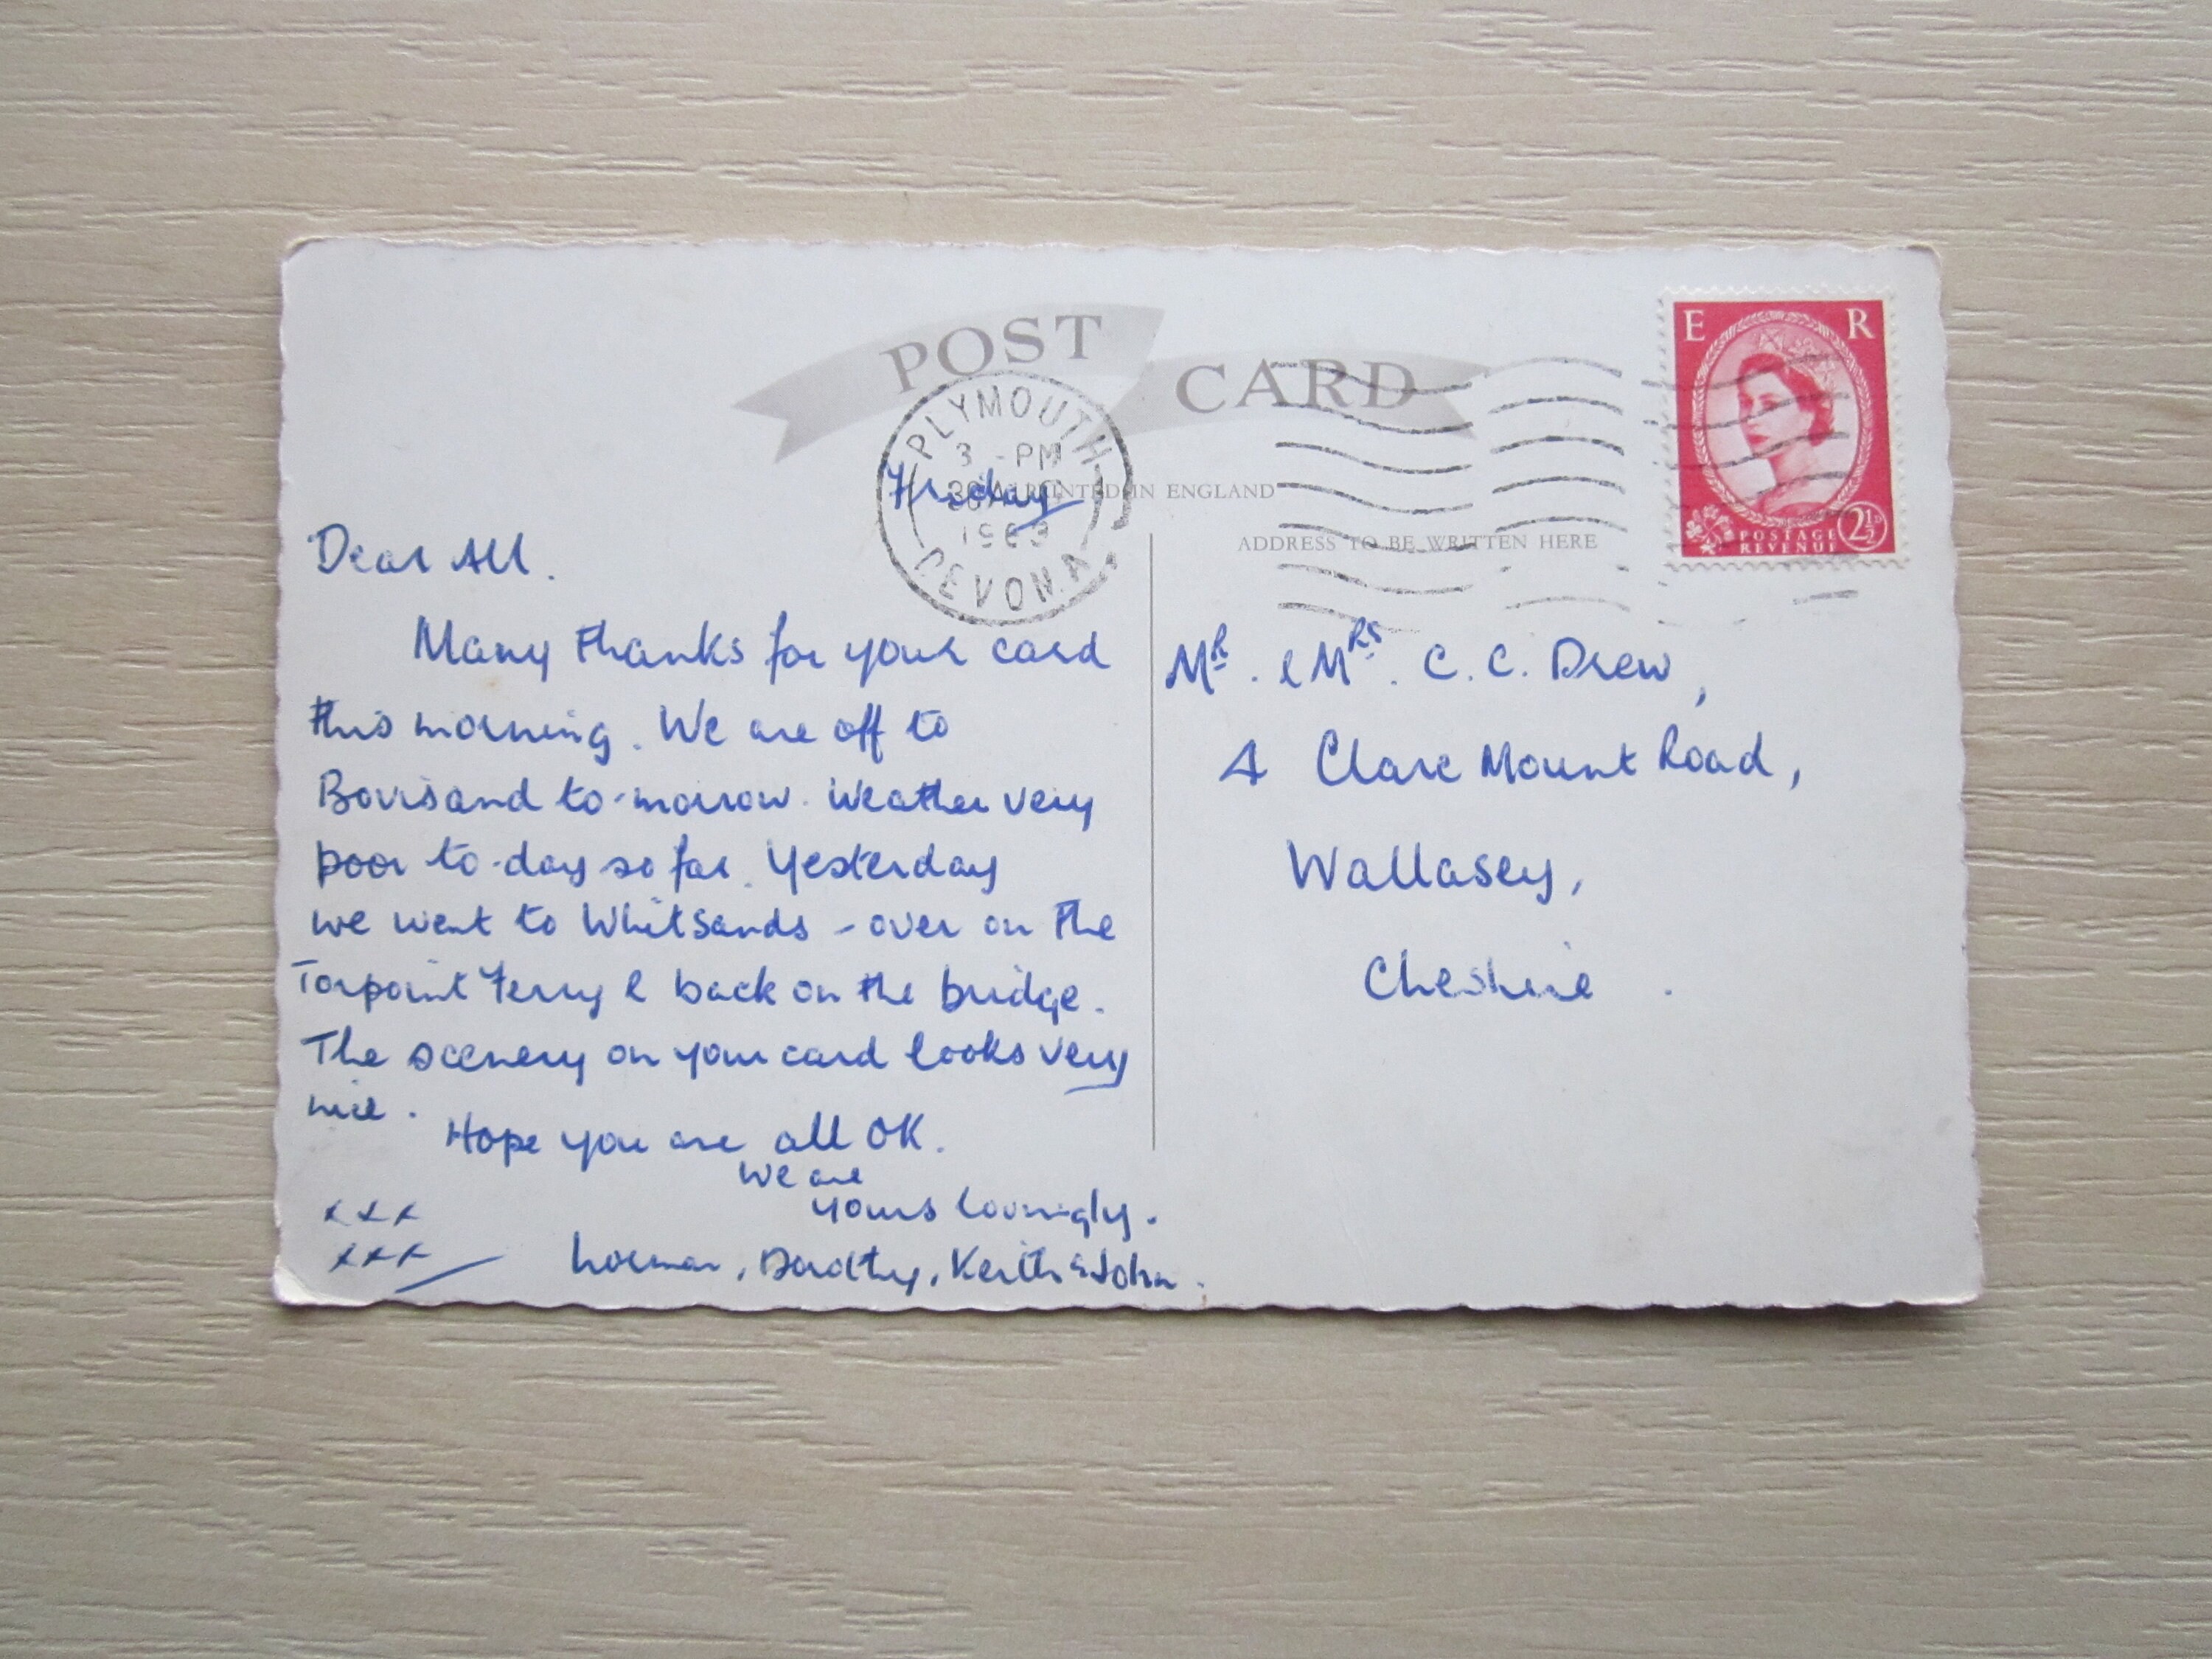 POST CARD
PLYMOUTH
3 - PM
1963
DEVON A.
Friday
PRINTED IN ENGLAND
ADDRESS TO BE WRITTEN HERE
E R
POSTAGE
REVENUE
2½D
Dear All.
Many thanks for your card
this morning. We are off to
Bovisand to-morrow. Weather very
poor to-day so far. Yesterday
we went to Whitsands - over on the
Torpoint Ferry & back on the bridge.
The scenery on your card looks very
nice.
Hope you are all OK.
We are
yours lovingly.
xxx
xxx
Norman, Dorothy, Keith & John.
MR. & MRS. C. C. Drew,
4 Clare Mount Road,
Wallasey,
Cheshire.